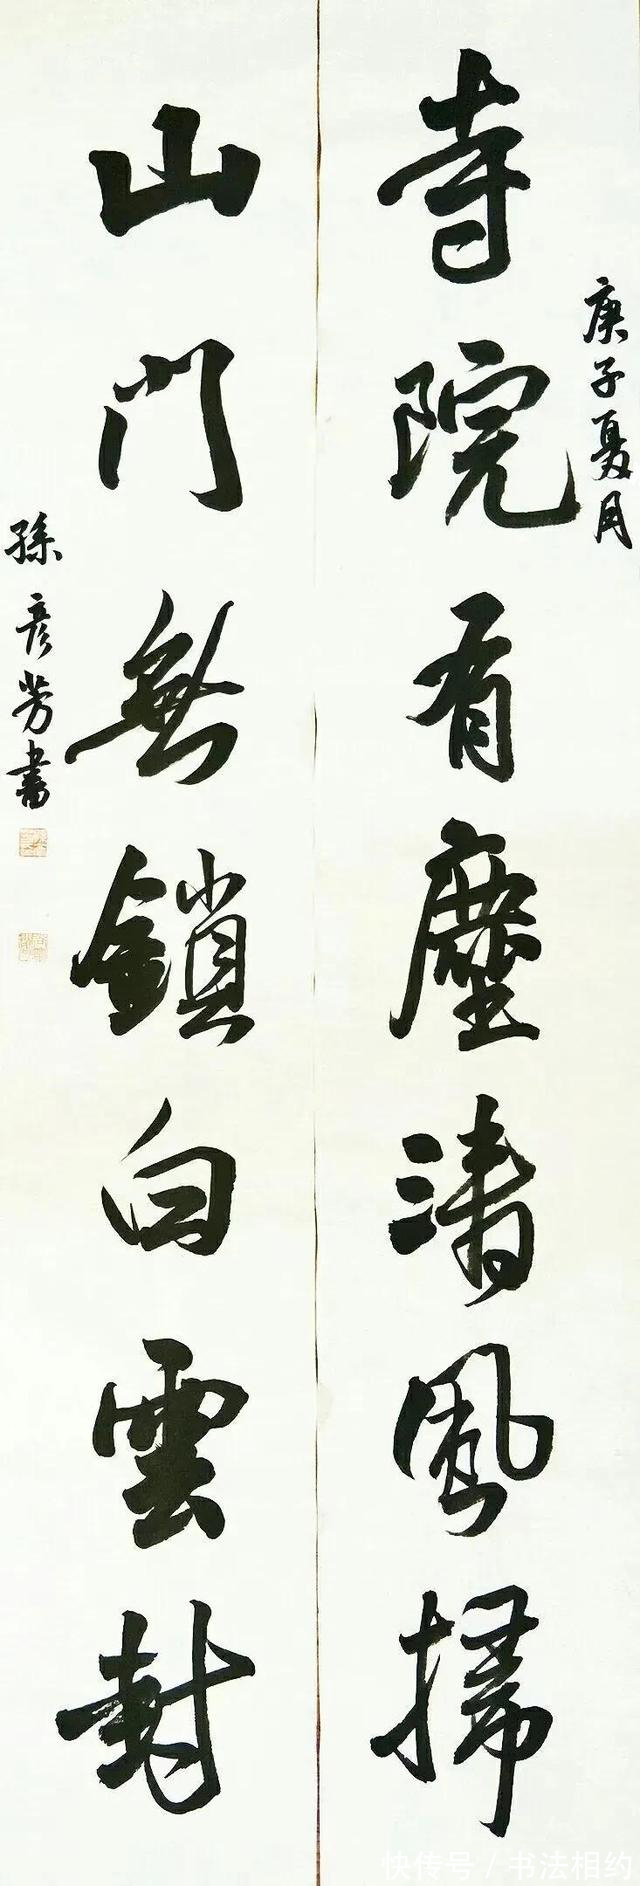 庚子夏月
寺院有塵清風掃
山門無鎖白雲封
孫彦芳書
快传号/书法相约